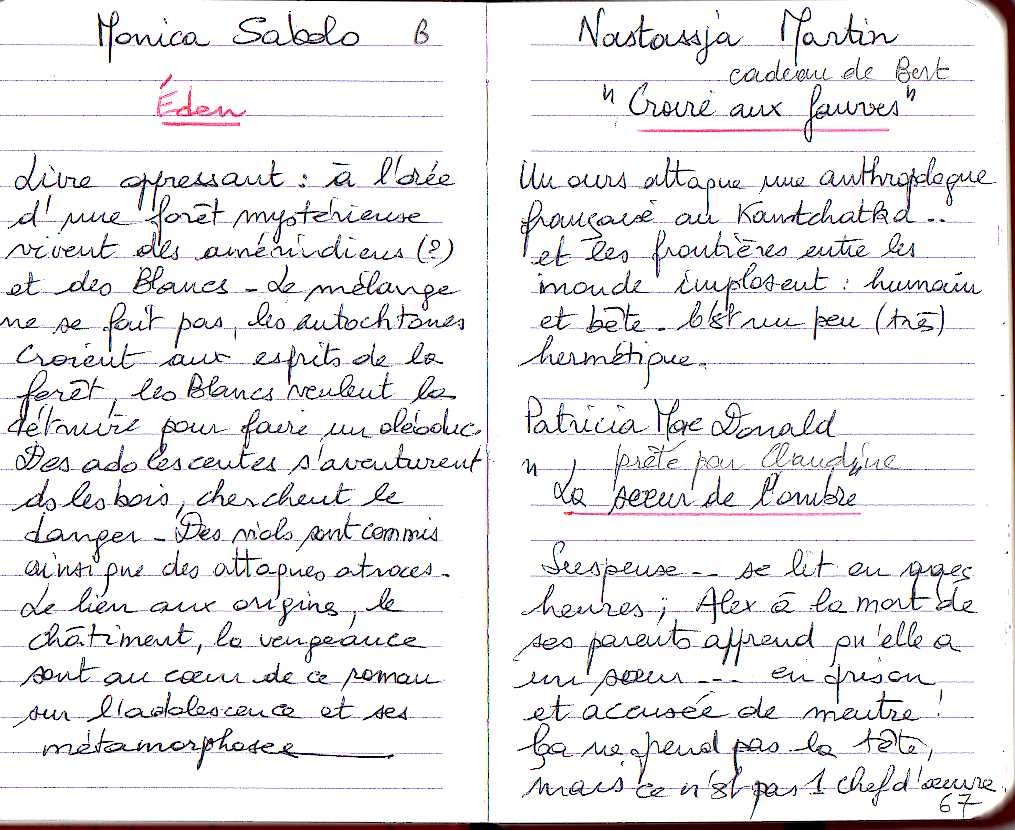 Monica Sabolo B
Éden
Livre oppressant : à l'orée
d'une forêt mystérieuse
vivent des amérindiens (?)
et des Blancs - Le mélange
ne se fait pas, les autochtones
croient aux esprits de la
forêt, les Blancs veulent la
détruire pour faire un oléoduc.
Des adolescentes s'aventurent
ds les bois, cherchent le
danger - Des viols sont commis
ainsi que des attaques atroces.
Le lien aux origines, le
châtiment, la vengeance
sont au cœur de ce roman
sur l'adolescence et ses
métamorphoses
Nastassja Martin
cadeau de Bert
"Croire aux fauves"
Un ours attaque une anthropologue
française au Kamtchatka ..
et les frontières entre les
monde implosent : humain
et bête - C'est un peu (très)
hermétique.
Patricia Mac Donald
prêté par Claudine
"La sœur de l'ombre"
Suspense -- se lit en qques
heures ; Alex à la mort de
ses parents apprend qu'elle a
une sœur --- en prison
et accusée de meutre !
Ça ne prend pas la tête,
mais ce n'est pas 1 chef d'œuvre.
67